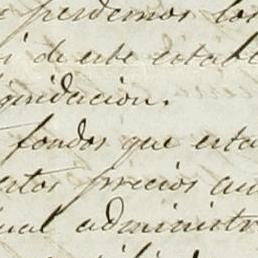 perdemos los
de este establ
iquidacion.
fondos que esta
ertos precios au
ual administr